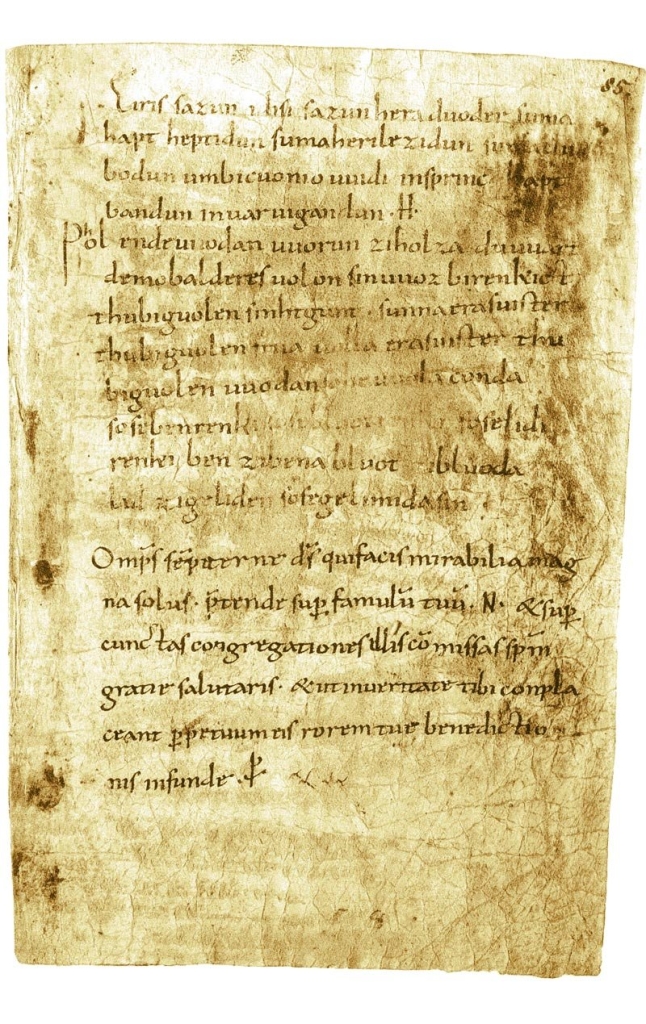 85
Eiris sazun idisi sazun hera duoder suma
hapt heptidun sumaherilezidun sumaclu
bodun umbicuonio uuidi insprinc hapt
bandun inuar uigandun · H ·
Phol endeuuodan uuorun ziholza du uuart
demobalderes uolon sinuuoz birenkict
thubiguolen sinhtgunt · sunnaerasuister
thubiguolen friia uolla erasuister thu
biguolen uuodan sohe uuolaconda
sosebenrenki sosebluotrenki soselidi
renki ben zibena bluot zibluoda
lid zigeliden sosegelimida sin
Omp̄s sēpiterne d̄s quifacis mirabilia mag
na solus · p̄tende sup̱ famulū tuū · N · &sup̱
cunctas congregationes illis cōmissas sp̄m
gratie salutaris · &utinueritate tibi conpla
ceant p̱petuum eis rorem tue benedictio
nis infunde · p̱